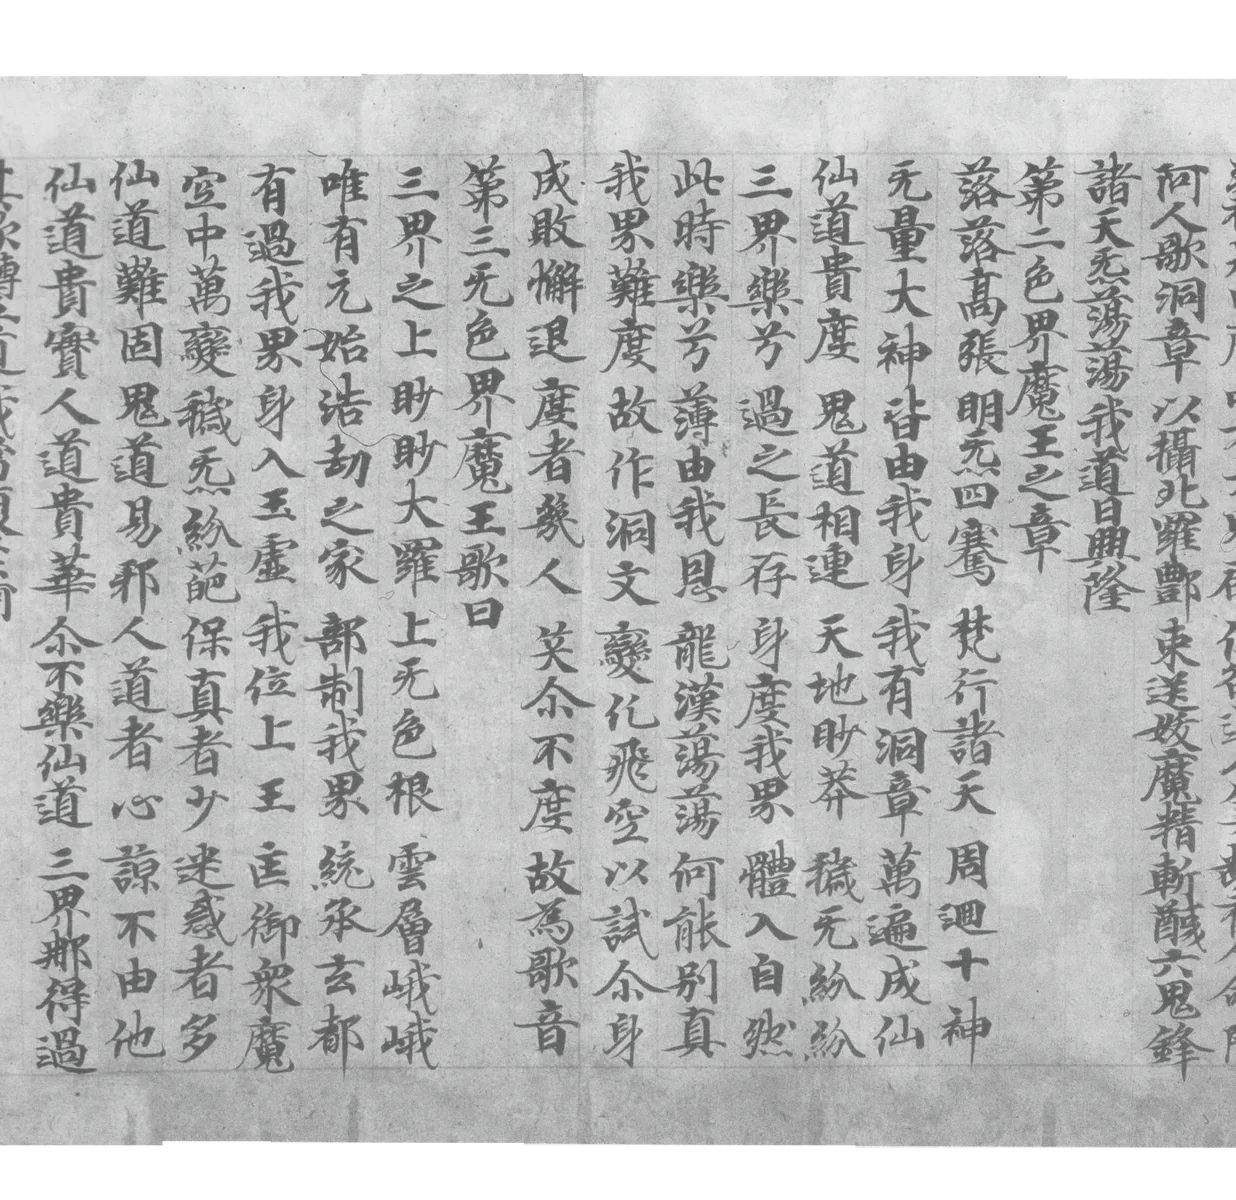 何人歌洞章以攝北羅酆束送妖魔精斬馘六鬼鋒
諸天炁蕩蕩我道日興隆
第二色界魔王之章
落落高張明炁四騫梵行諸天周迴十神
无量大神皆由我身我有洞章萬遍成仙
仙道貴度鬼道相連天地眇莽穢无紛紛
三界樂兮過之長存身度我界體入自然
此時樂兮薄由我恩龍漢蕩蕩何能別真
我界難度故作洞文變化飛空以試尒身
成敗懈退度者幾人笑尒不度故為歌音
第三无色界魔王歌曰
三界之上眇眇大羅上无色根雲層峨峨
唯有元始浩劫之家部制我界統承玄都
有過我界身入玉虛我位上王匡御衆魔
空中萬變穢炁紛葩保真者少迷惑者多
仙道難固鬼道易邪人道者心諒不由他
仙道貴實人道貴華尒不樂仙道三界那得過